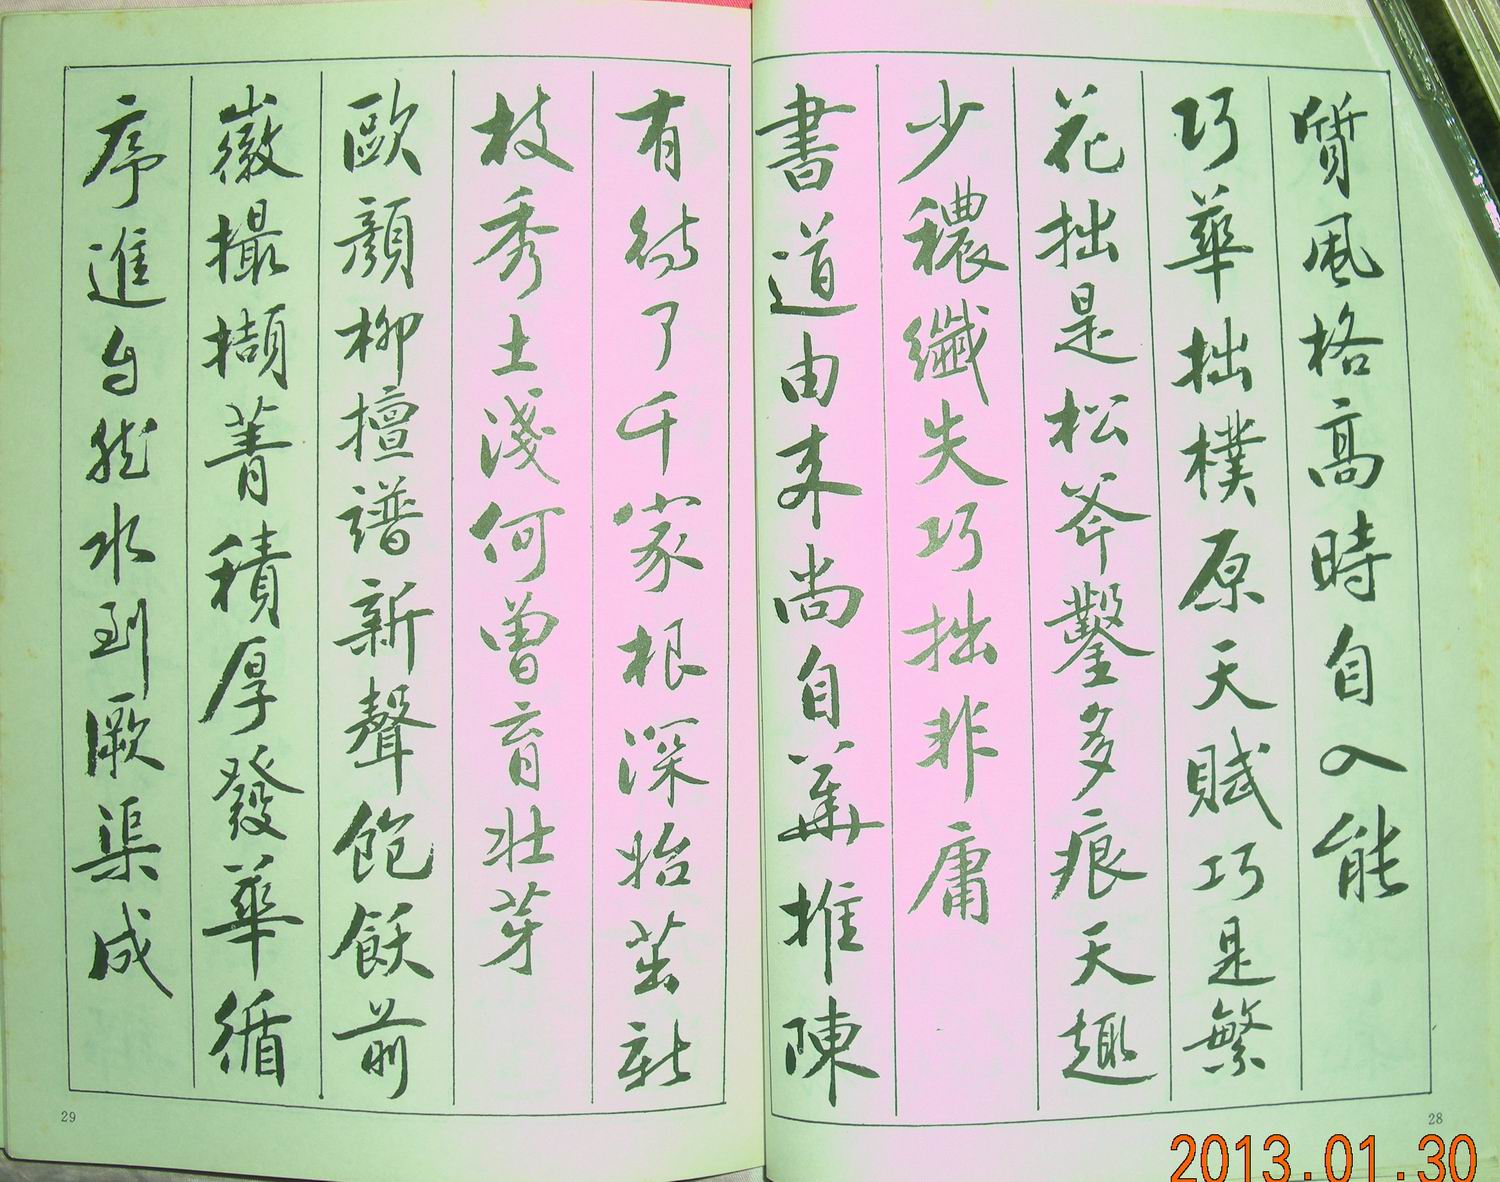 質風格高時自入能
巧華拙樸原天賦巧是繁
花拙是松斧鑿多痕天趣
少穠纖失巧拙非庸
書道由来尚自華推陳
有待了千家根深始茁新
枝秀土淺何曾育壯芽
歐顏柳擅譜新聲飽飫前
徽撮擷菁積厚發華循
序進自然水到厥渠成
28
29
2013.01.30